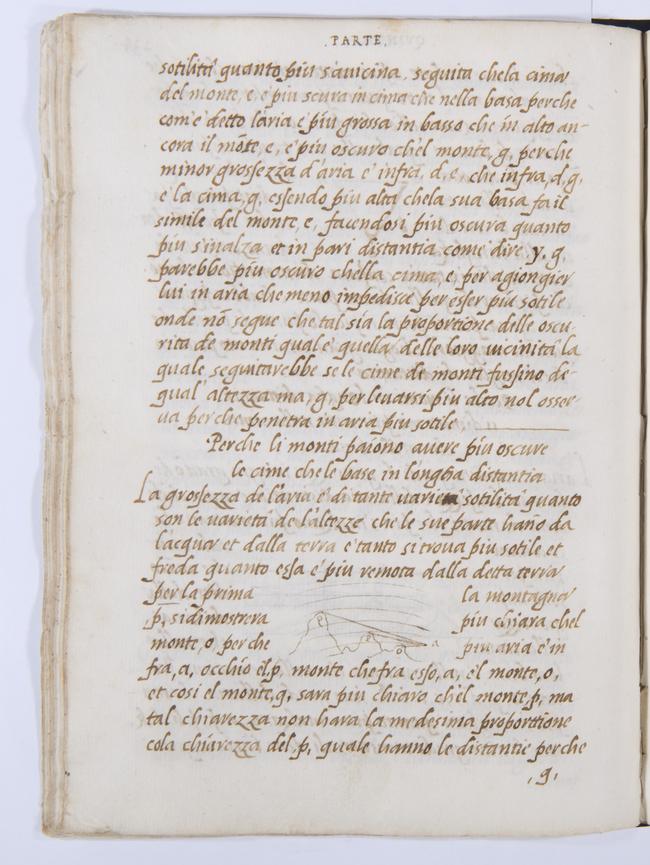 .PARTE.
sotilità quanto piu s'auicina. seguita che la cima
del monte, e, e piu scura in cima che nella basa perche
com'e detto l'aria e piu grossa in basso che in alto an-
cora il mõte, e, e' piu oscuro ch'el monte, g, perche
minor grossezza d'aria e' infra, d, e, che infra, d, g,
e la cima, g, essendo piu alta che la sua basa fa il
simile del monte, e, facendosi piu oscura quanto
piu s'inalza et in pari distantia come dire, y, g,
parebbe piu oscuro che lla cima, e, per agiongier
lui in aria che meno impedisce per esser piu sotile
onde nõ segue che tal sia la proportione delle oscu-
rita de monti qual e' quella delle loro uicinità la
quale seguitarebbe se le cime de monti fussino de-
qual' altezza ma, g, per leuarsi piu alto nol osser-
ua perche penetra in aria piu sotile
Perche li monti paiono auere piu oscure
le cime che le base in longha distantia
La grossezza de l'aria e' di tante uarietà sotilità quanto
son le uarietà de l'altezze che le sue parte hano da
l'acqua et dalla terra e tanto si troua piu sotile et
freda quanto essa e' piu remota dalla detta terra
per la prima la montagna
p, si dimostrera piu chiara chel
monte, o, perche piu aria e' in
fra, a, occhio el, p, monte che fra esso, a, el monte, o,
et cosi el monte, g, sara piu chiaro ch'el monte, p, ma
tal chiarezza non hara la medesima proporttione
cola chiarezza del, p, quale hanno le distantie perche
, g,